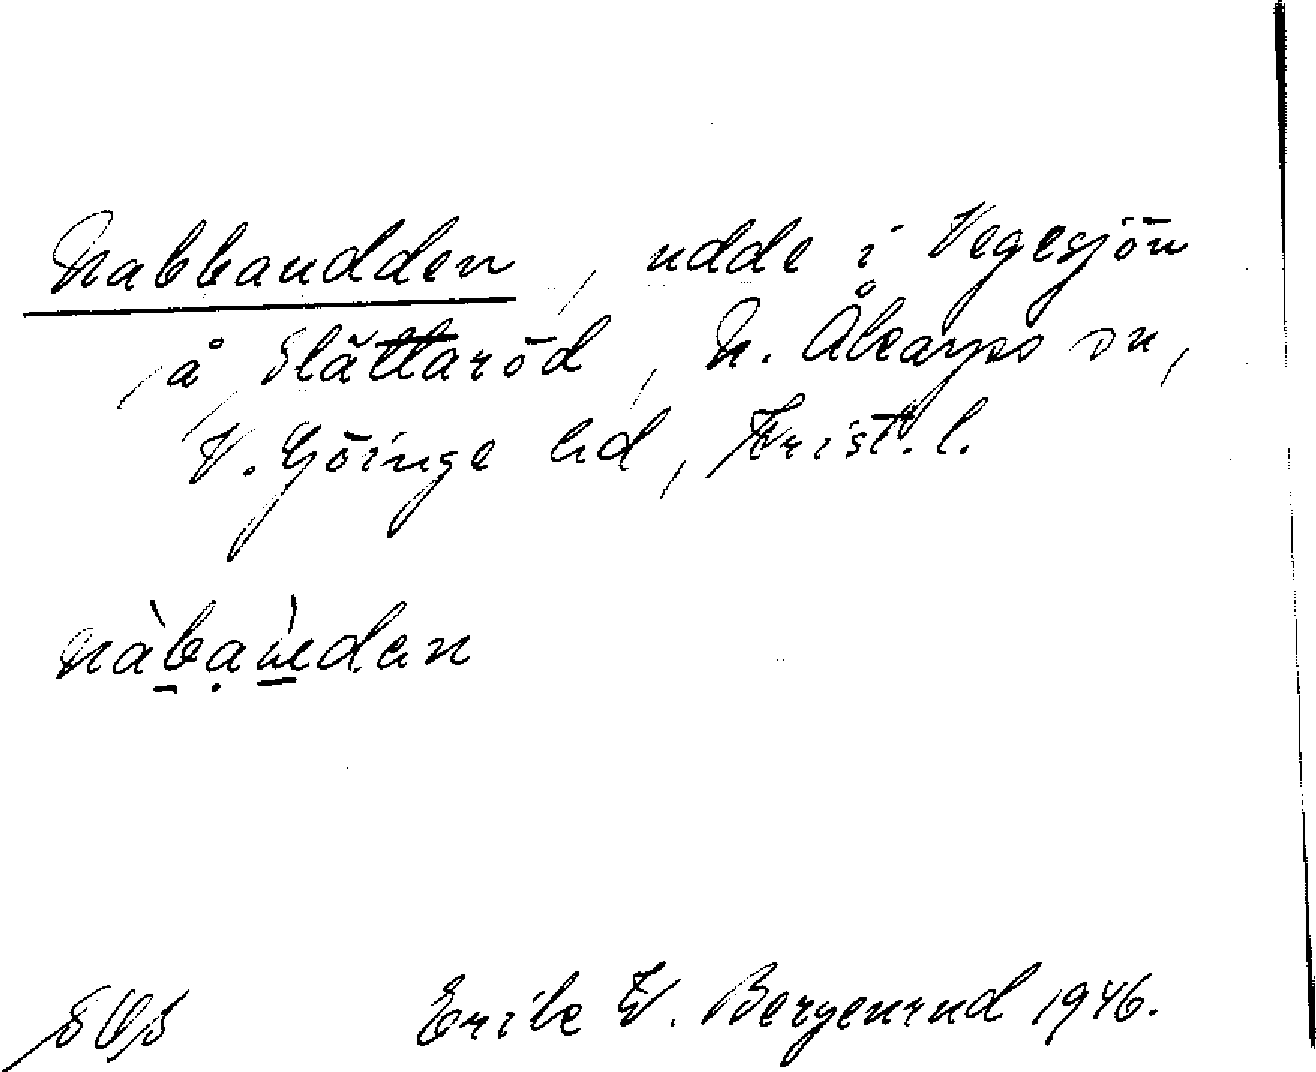 Nabbaudden, udde i Vegesjön
å Slättaröd, N. Åkarps sn,
V. Göinge hd, Krist. l.
nàbaùden
Erik W. Bergenrud 1946.